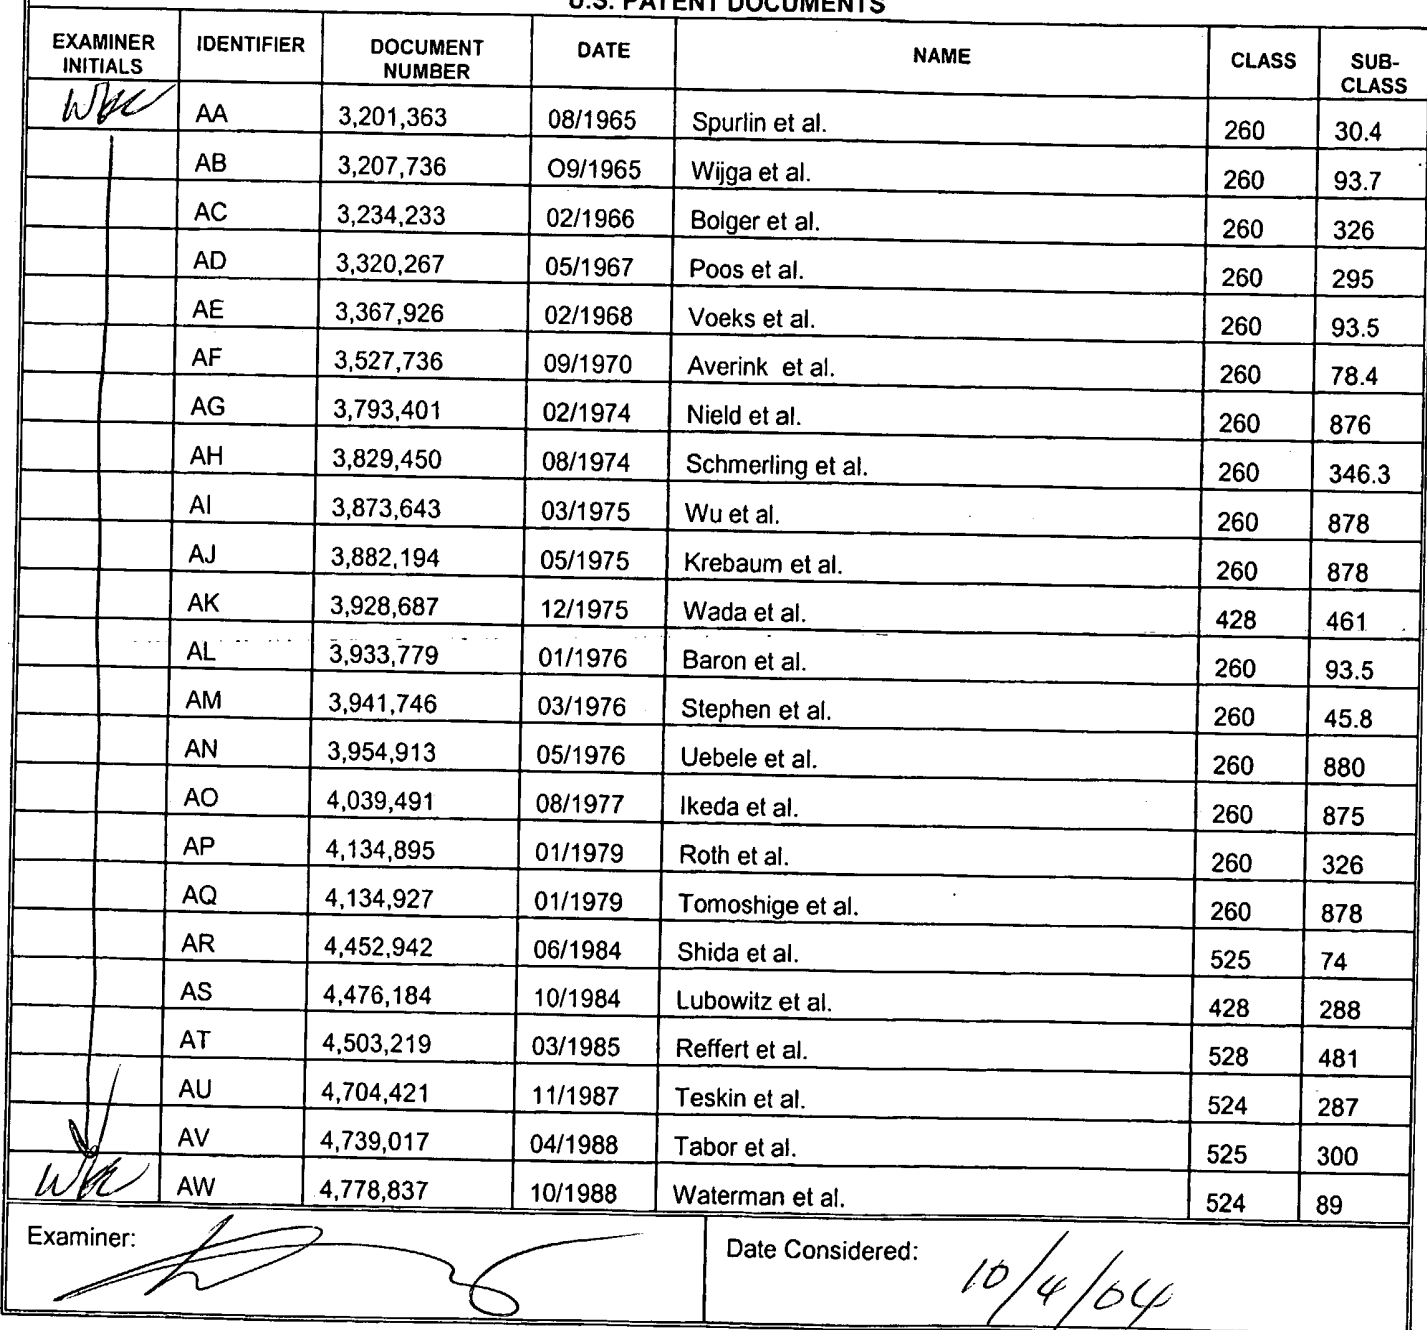 U.S. PATENT DOCUMENTS
EXAMINER INITIALS IDENTIFIER DOCUMENT NUMBER DATE NAME CLASS SUB-CLASS
AA 3,201,363 08/1965 Spurlin et al. 260 30.4
AB 3,207,736 O9/1965 Wijga et al. 260 93.7
AC 3,234,233 02/1966 Bolger et al. 260 326
AD 3,320,267 05/1967 Poos et al. 260 295
AE 3,367,926 02/1968 Voeks et al. 260 93.5
AF 3,527,736 09/1970 Averink et al. 260 78.4
AG 3,793,401 02/1974 Nield et al. 260 876
AH 3,829,450 08/1974 Schmerling et al. 260 346.3
AI 3,873,643 03/1975 Wu et al. 260 878
AJ 3,882,194 05/1975 Krebaum et al. 260 878
AK 3,928,687 12/1975 Wada et al. 428 461
AL 3,933,779 01/1976 Baron et al. 260 93.5
AM 3,941,746 03/1976 Stephen et al. 260 45.8
AN 3,954,913 05/1976 Uebele et al. 260 880
AO 4,039,491 08/1977 Ikeda et al. 260 875
AP 4,134,895 01/1979 Roth et al. 260 326
AQ 4,134,927 01/1979 Tomoshige et al. 260 878
AR 4,452,942 06/1984 Shida et al. 525 74
AS 4,476,184 10/1984 Lubowitz et al. 428 288
AT 4,503,219 03/1985 Reffert et al. 528 481
AU 4,704,421 11/1987 Teskin et al. 524 287
AV 4,739,017 04/1988 Tabor et al. 525 300
AW 4,778,837 10/1988 Waterman et al. 524 89
Examiner: Date Considered: 10/4/04